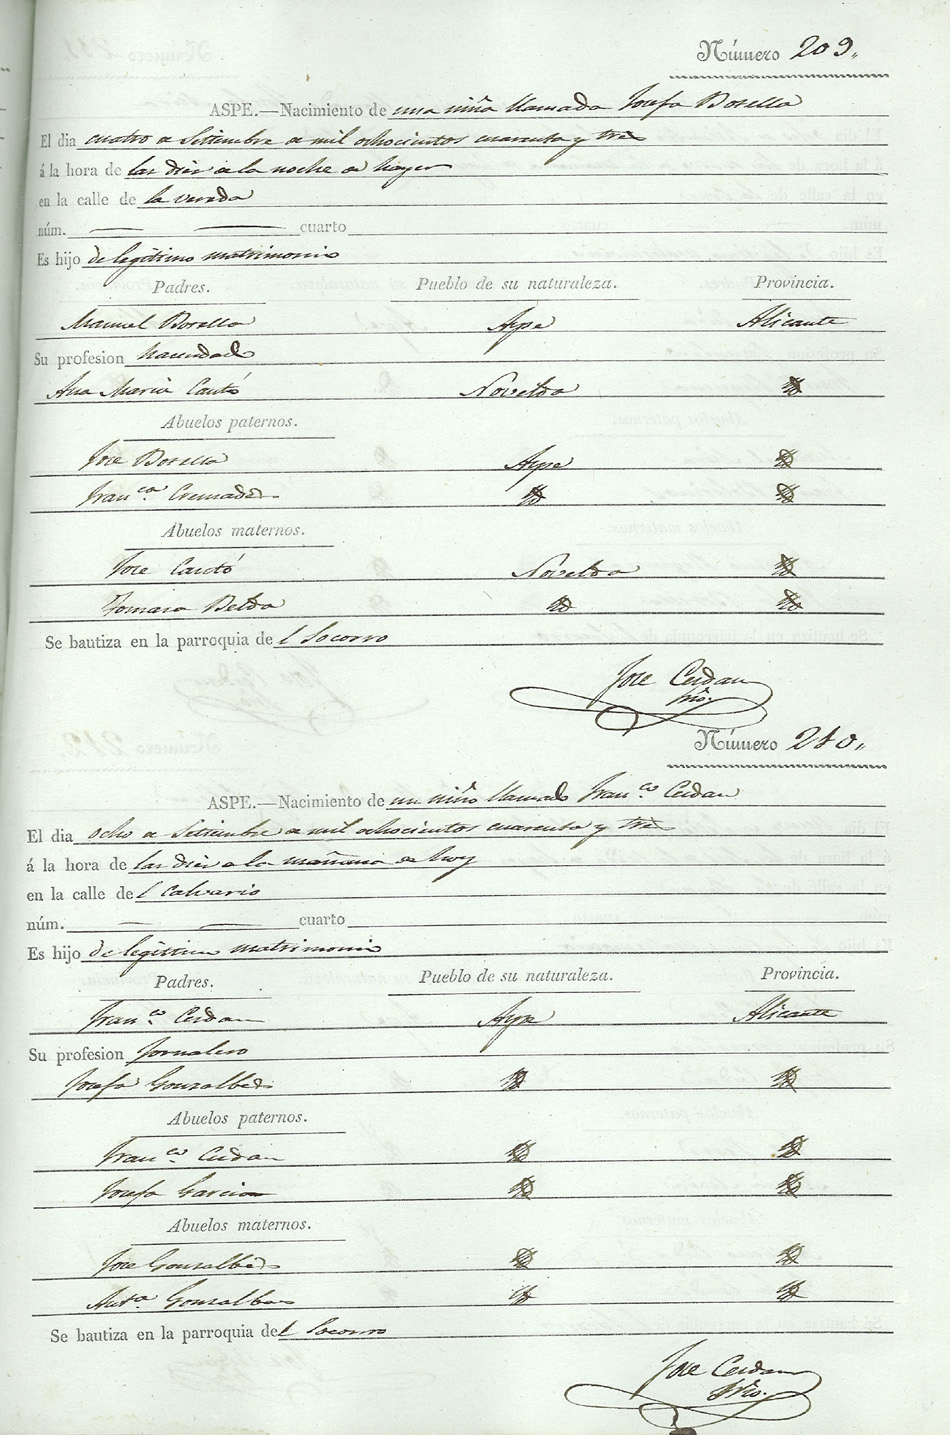 Número 209.
ASPE.—Nacimiento de una niña llamada Josefa Botella
El dia cuatro de Setiembre de mil ochocientos cuarenta y tres
á la hora de las diez de la noche de hayer
en la calle de la vereda
núm. — — cuarto
Es hijo de legitimo matrimonio
Padres. Pueblo de su naturaleza. Provincia.
Manuel Botella Aspe Alicante
Su profesion hacendado
Ana Maria Cantó Novelda Yd
Abuelos paternos.
Jose Botella Aspe Yd
Fran.ca Cremades Yd Yd
Abuelos maternos.
Jose Cantó Novelda Yd
Tomasa Belda Yd Yd
Se bautiza en la parroquia del Socorro
Jose Cerdan
Srio.
Número 210.
ASPE.—Nacimiento de un niño llamado Fran.co Cerdan
El dia ocho de Setiembre de mil ochocientos cuarenta y tres
á la hora de las diez de la mañana de hoy
en la calle del Calvario
núm. — — cuarto
Es hijo de legitimo matrimonio
Padres. Pueblo de su naturaleza. Provincia.
Fran.co Cerdan Aspe Alicante
Su profesion Jornalero
Josefa Gonzalbes Yd Yd
Abuelos paternos.
Fran.co Cerdan Yd Yd
Josefa Garcia Yd Yd
Abuelos maternos.
Jose Gonzalbes Yd Yd
Ant.a Gonzalbes Yd Yd
Se bautiza en la parroquia del Socorro
Jose Cerdan
Srio.